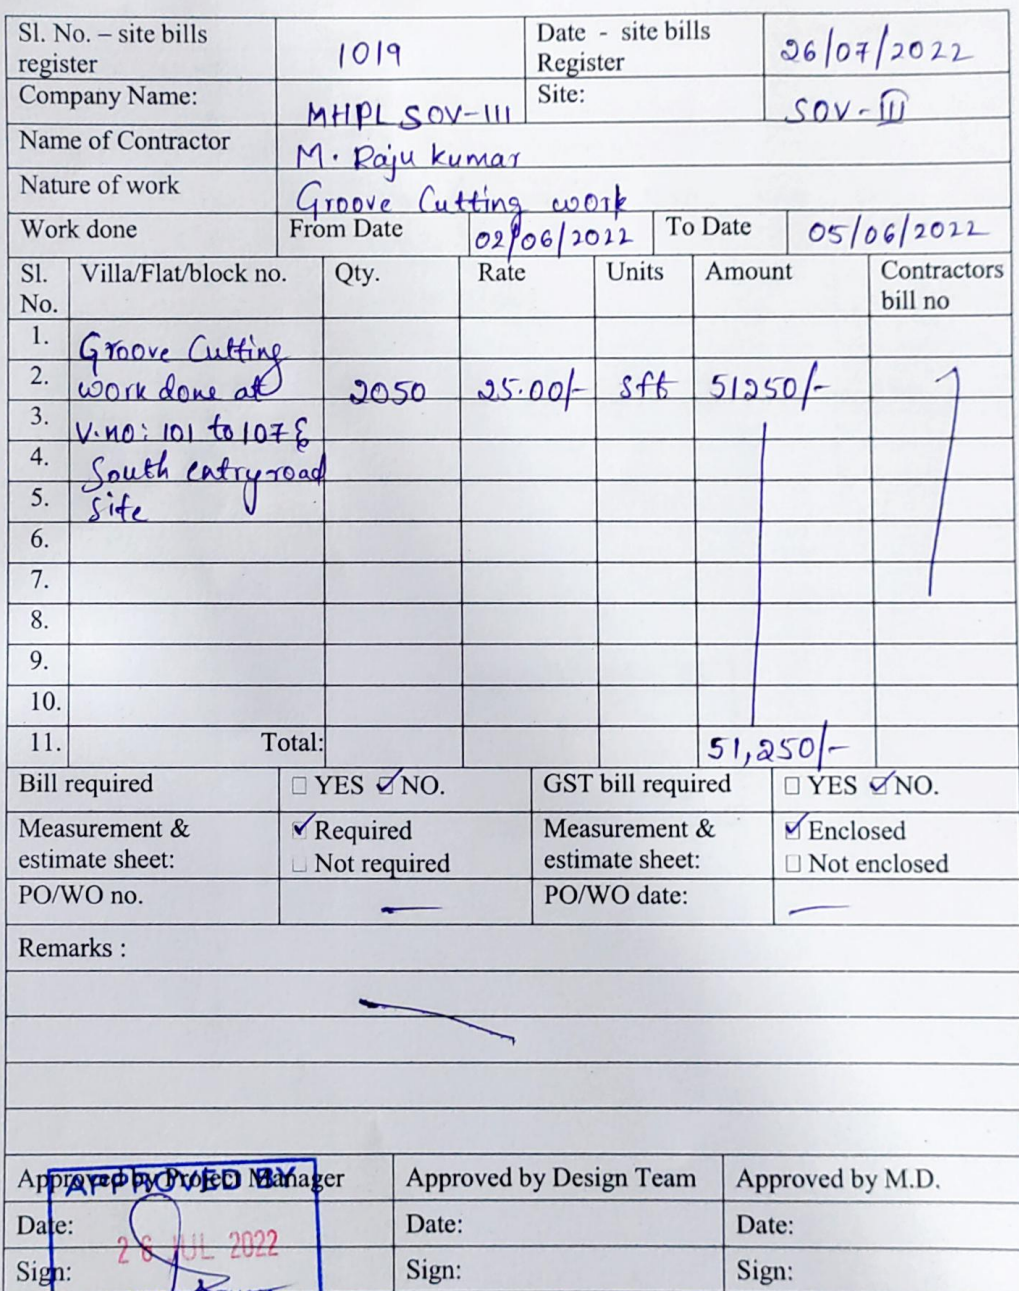 Sl. No. – site bills register 1019 Date - site bills Register 26/07/2022
Company Name: MHPL SOV-III Site: SOV-III
Name of Contractor M. Raju kumar
Nature of work Groove Cutting work
Work done From Date 02/06/2022 To Date 05/06/2022
Sl. No. Villa/Flat/block no. Qty. Rate Units Amount Contractors bill no
1. Groove Cutting
2. work done at 2050 25.00/- sft 51250/-
3. V.no: 101 to 107 &
4. South entry road
5. site
6.
7.
8.
9.
10.
11. Total: 51,250/-
Bill required □ YES ☑ NO. GST bill required □ YES ☑ NO.
Measurement & estimate sheet: ☑ Required □ Not required Measurement & estimate sheet: ☑ Enclosed □ Not enclosed
PO/WO no. — PO/WO date: —
Remarks :
Approved by Project Manager Approved by Design Team Approved by M.D.
APPROVED BY
Date: 26 JUL 2022 Date: Date:
Sign: Sign: Sign: